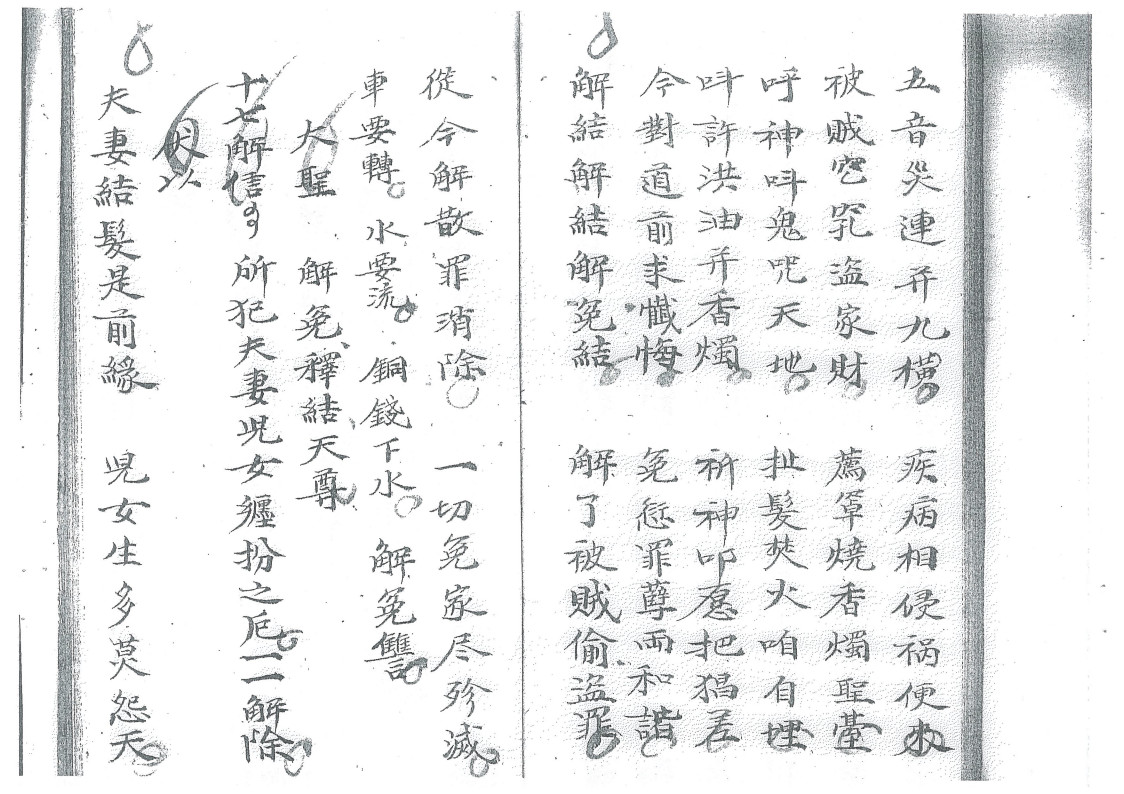 五音災連并九橫 疾病相侵祸便來
被賊穵窂盜家財 薦筸燒香燭聖臺
呼神呌鬼咒天地 扯髮焚火咱自埋
呌許洪油并香燭 祈神叩愿把猖差
今對道前求懺悔 冤愆罪孽両和諧
解結解結解冤結 解了被賊偷盜罪
從今解散罪消除 一切冤家尽殄滅
車要轉 水要流 銅錢下水 解冤讐
大聖 解冤釋結天尊
十七解信 所犯夫妻児女纒扮之厄一一解除
伏以
夫妻結髮是前緣 児女生多莫怨天